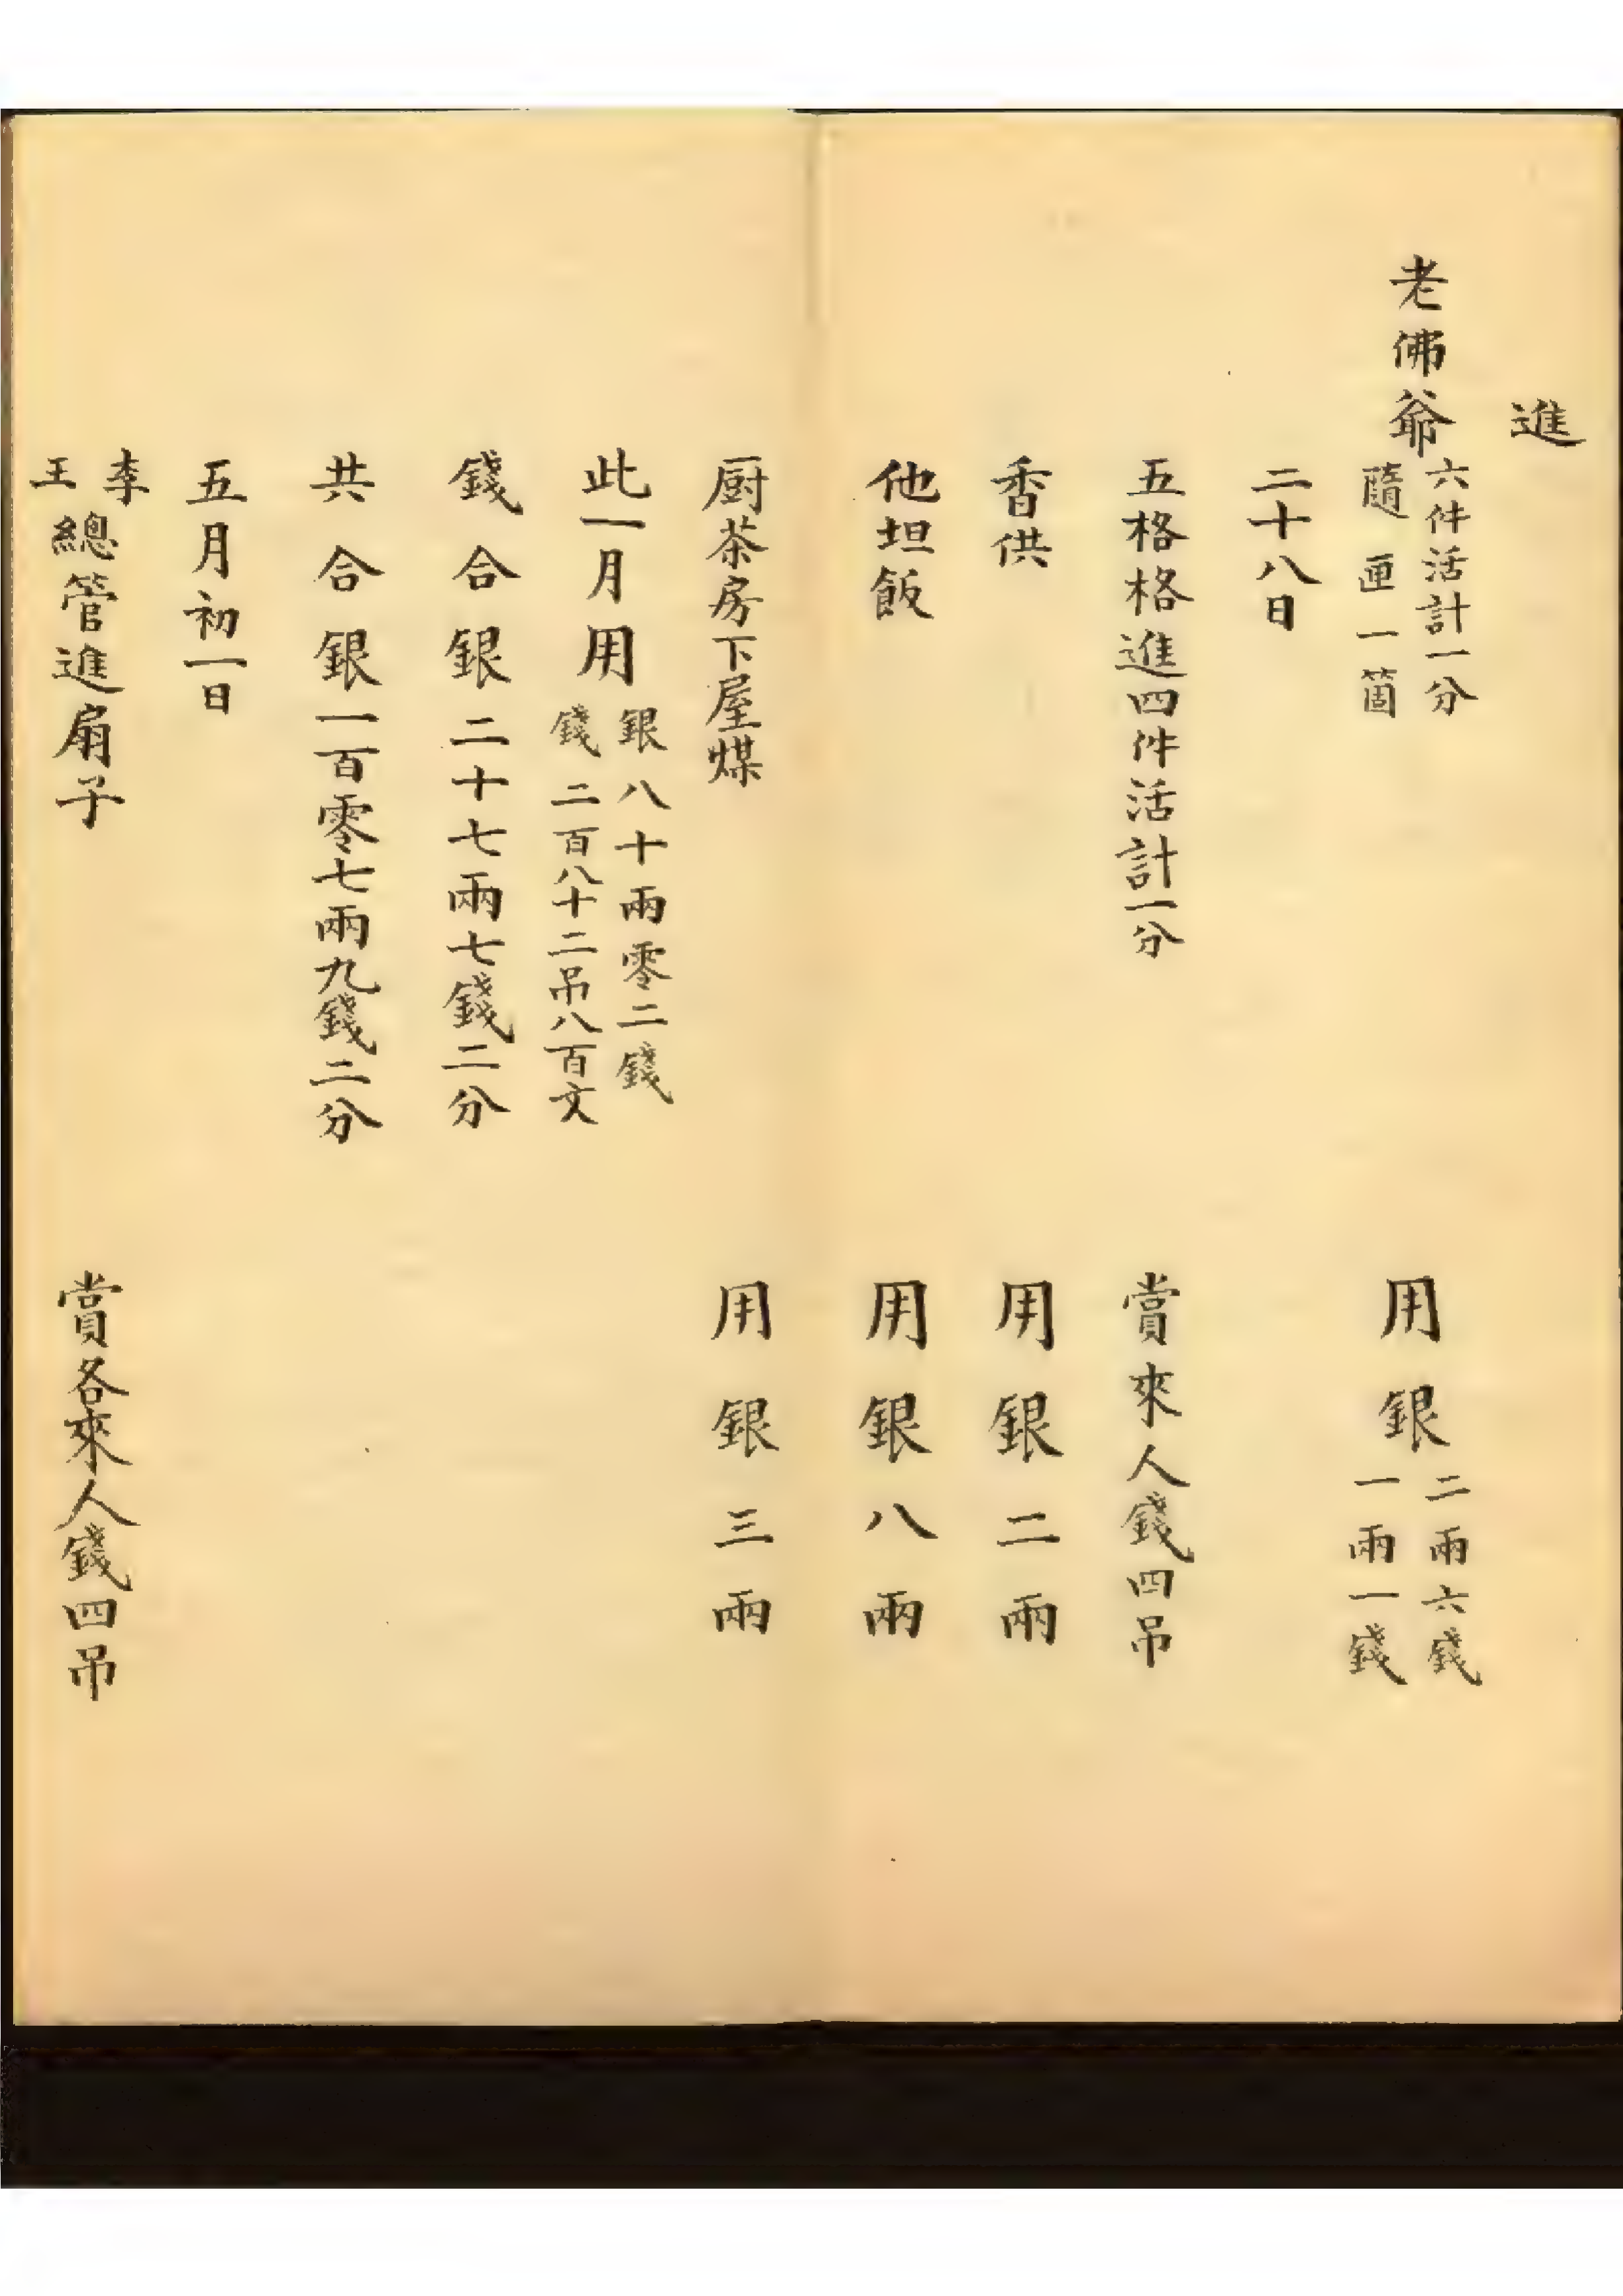 進
老佛爺六件活計一分 用銀二兩六錢
隨匣一箇 一兩一錢
二十八日
五格格進四件活計一分 賞來人錢四吊
香供 用銀二兩
他坦飯 用銀八兩
厨茶房下屋煤 用銀三兩
此一月用銀八十兩零二錢
錢二百八十二吊八百文
錢合銀二十七兩七錢二分
共合銀一百零七兩九錢二分
五月初一日
李王總管進扇子 賞各來人錢四吊